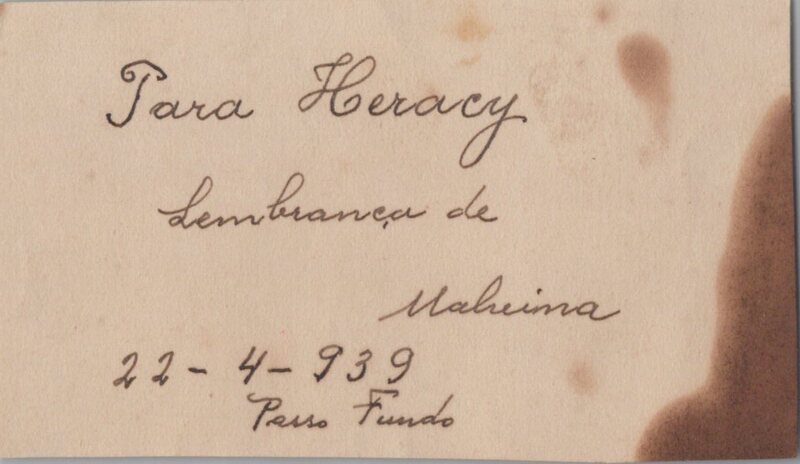 Para Heracy
Lembrança de
22 - 4 - 939
Passo Fundo